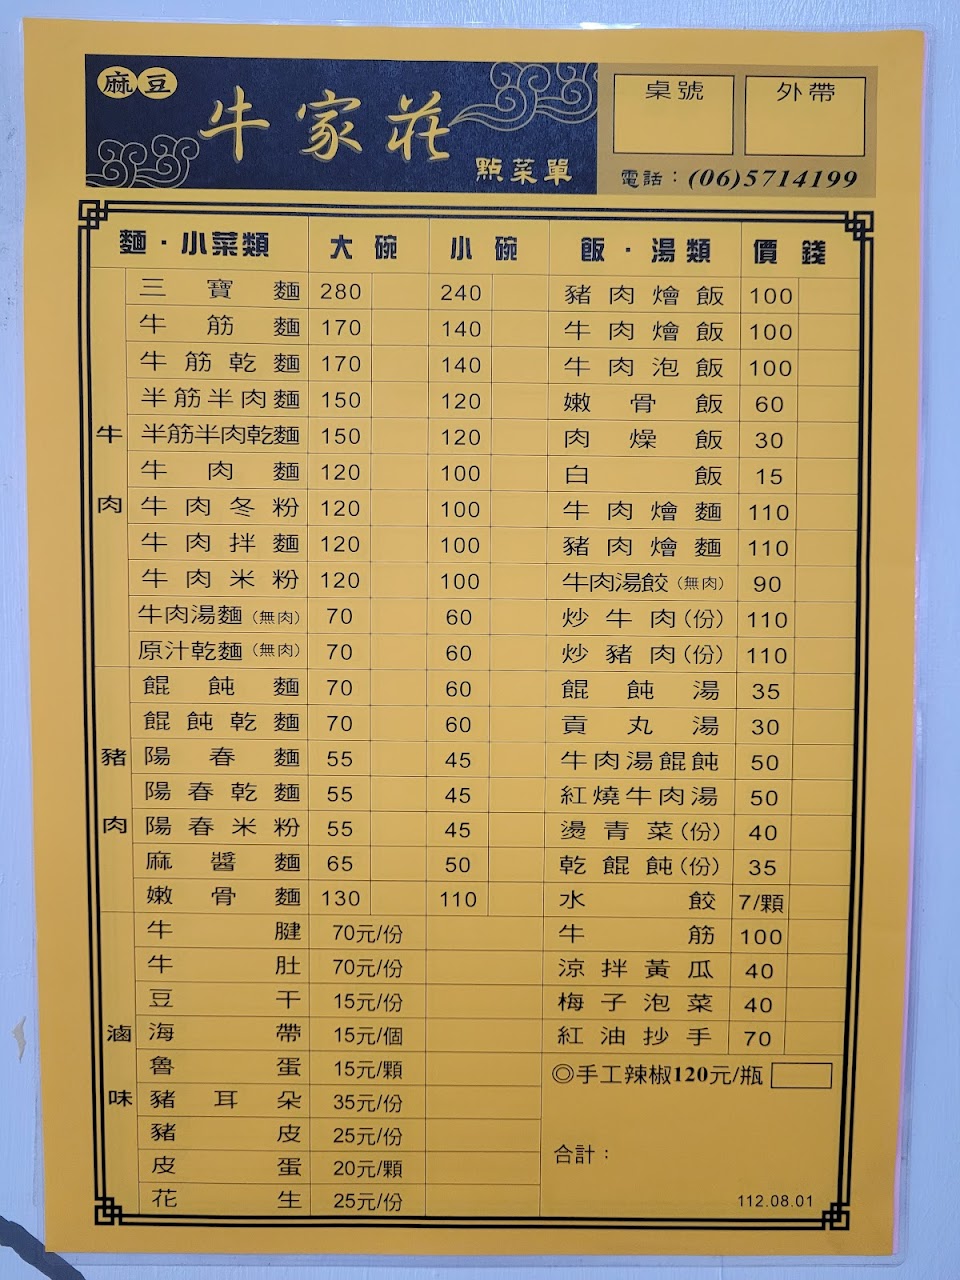 麻豆
牛家莊
點菜單
桌號 外帶
電話：(06)5714199
麵．小菜類 大碗 小碗 飯．湯類 價錢
牛肉
三寶麵 280 240 豬肉燴飯 100
牛筋麵 170 140 牛肉燴飯 100
牛筋乾麵 170 140 牛肉泡飯 100
半筋半肉麵 150 120 嫩骨飯 60
半筋半肉乾麵 150 120 肉燥飯 30
牛肉麵 120 100 白飯 15
牛肉冬粉 120 100 牛肉燴麵 110
牛肉拌麵 120 100 豬肉燴麵 110
牛肉米粉 120 100 牛肉湯餃(無肉) 90
牛肉湯麵(無肉) 70 60 炒牛肉(份) 110
原汁乾麵(無肉) 70 60 炒豬肉(份) 110
豬肉
餛飩麵 70 60 餛飩湯 35
餛飩乾麵 70 60 貢丸湯 30
陽春麵 55 45 牛肉湯餛飩 50
陽春乾麵 55 45 紅燒牛肉湯 50
陽春米粉 55 45 燙青菜(份) 40
麻醬麵 65 50 乾餛飩(份) 35
嫩骨麵 130 110 水餃 7/顆
滷味
牛腱 70元/份 牛筋 100
牛肚 70元/份 涼拌黃瓜 40
豆干 15元/份 梅子泡菜 40
海帶 15元/個 紅油抄手 70
魯蛋 15元/顆 ◎手工辣椒120元/瓶
豬耳朵 35元/份
豬皮 25元/份 合計：
皮蛋 20元/顆
花生 25元/份 112.08.01